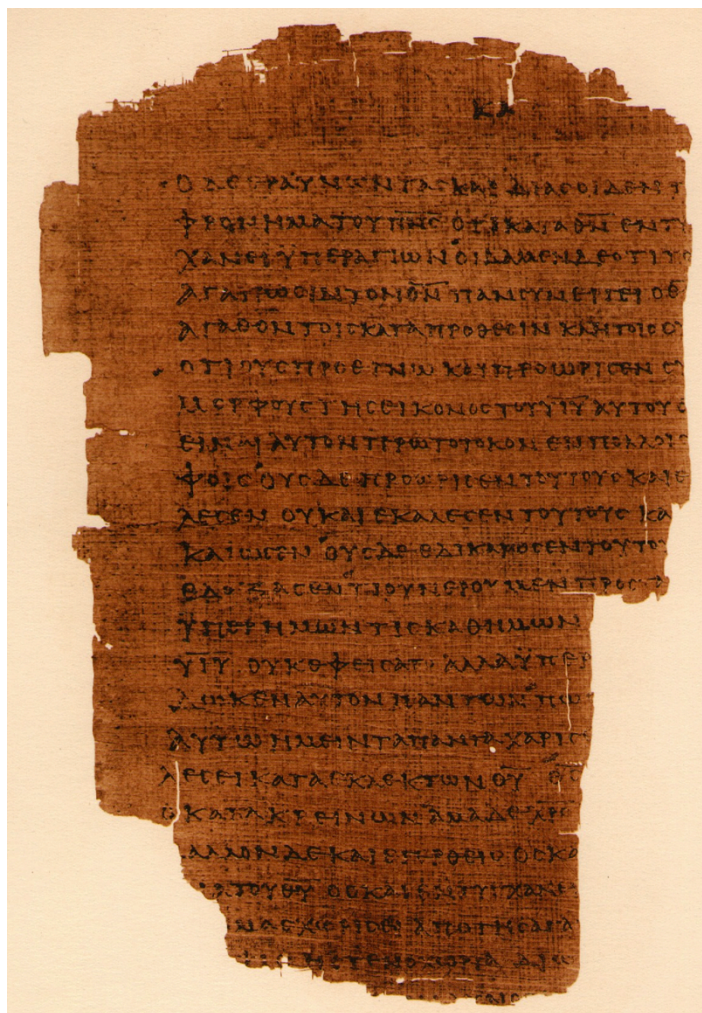 ΚΑ
Ο ΔΕ ΕΡΑΥΝΩΝ ΤΑϹ ΚΑΡΔΙΑϹ ΟΙΔΕΝ Τ
ΦΡΟΝΗΜΑ ΤΟΥ Π̅Ν̅Ϲ̅ ΟΤΙ ΚΑΤΑ Θ̅Ν̅ ΕΝΤΥ
ΧΑΝΕΙ ΥΠΕΡ ΑΓΙΩΝ ΟΙΔΑΜΕΝ ΔΕ ΟΤΙ ΤΟ
ΑΓΑΠΩϹΙΝ ΤΟΝ Θ̅Ν̅ ΠΑΝ ϹΥΝΕΡΓΕΙ Ο Θ
ΑΓΑΘΟΝ ΤΟΙϹ ΚΑΤΑ ΠΡΟΘΕϹΙΝ ΚΛΗΤΟΙϹ ΟΥ
ΟΤΙ ΟΥϹ ΠΡΟΕΓΝΩ ΚΑΙ ΠΡΟΩΡΙϹΕΝ ϹΥ
ΜΟΡΦΟΥϹ ΤΗϹ ΕΙΚΟΝΟϹ ΤΟΥ Υ̅Ι̅Υ̅ ΑΥΤΟΥ
ΕΙΝΑΙ ΑΥΤΟΝ ΠΡΩΤΟΤΟΚΟΝ ΕΝ ΠΟΛΛΟΙϹ
ΦΟΙϹ ΟΥϹ ΔΕ ΠΡΟΩΡΙϹΕΝ ΤΟΥΤΟΥϹ ΚΑΙ Ε
ΛΕϹΕΝ ΟΥ ΚΑΙ ΕΚΑΛΕϹΕΝ ΤΟΥΤΟΥϹ ΚΑ
ΚΑΙΩϹΕΝ ΟΥϹ ΔΕ ΕΔΙΚΑΙΩϹΕΝ ΤΟΥΤΟ
ΕΔΟΞΑϹΕΝ ΤΙ ΟΥΝ ΕΡΟΥΜΕΝ ΠΡΟϹ
ΥΠΕΡ ΗΜΩΝ ΤΙϹ ΚΑΘ ΗΜΩΝ
Υ̅Ι̅Υ̅ ΟΥΚ ΕΦΕΙϹΑΤΟ ΑΛΛΑ ΫΠΕΡ
ΔΩΚΕΝ ΑΥΤΟΝ ΠΑΝΤΩΝ ΠΩ
ΑΥΤΩ ΗΜΕΙΝ ΤΑ ΠΑΝΤΑ ΧΑΡΙϹ
ΛΕϹΕΙ ΚΑΤΑ ΕΚΛΕΚΤΩΝ Θ̅Υ̅ Θ̅Ϲ̅
Ο ΚΑΤΑΚΡΕΙΝΩΝ ΑΜΑ ΔΕ Χ̅Ρ̅Ϲ̅
ΑΛΛΟΝ ΔΕ ΚΑΙ ΕΓΕΡΘΕΙϹ ΟϹ ΚΑ
ΤΟΥ Θ̅Υ̅ ΟϹ ΚΑΙ ΕΝΤΥΓΧΑΝΕΙ
ΜΑϹ ΧΩΡΙϹΕΙ ΑΠΟ ΤΗϹ ΑΓΑ
Η ϹΤΕΝΟΧΩΡΙΑ ΔΙΩ